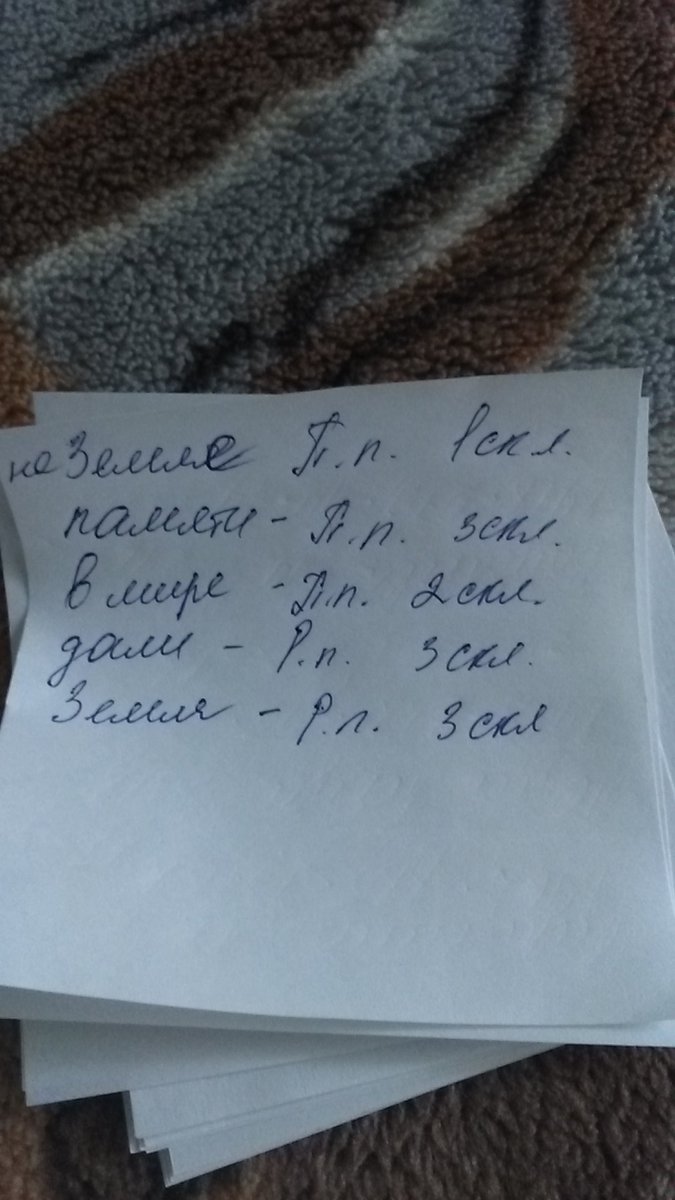 на Земле П.п. 1скл.
памяти - П.п. 3скл.
в мире - П.п. 2скл.
дали - Р.п. 3скл.
Земля - Р.п. 3скл